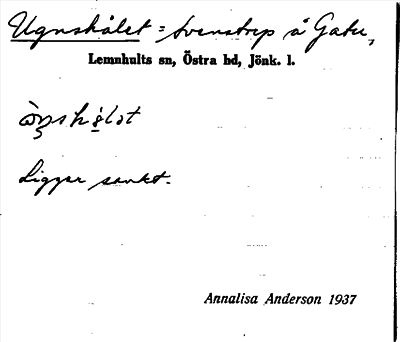 Ugnshålet = Svenstrep å Gatu,
Lemnhults sn, Östra hd, Jönk. l.
Ligger sankt.
Annalisa Anderson 1937